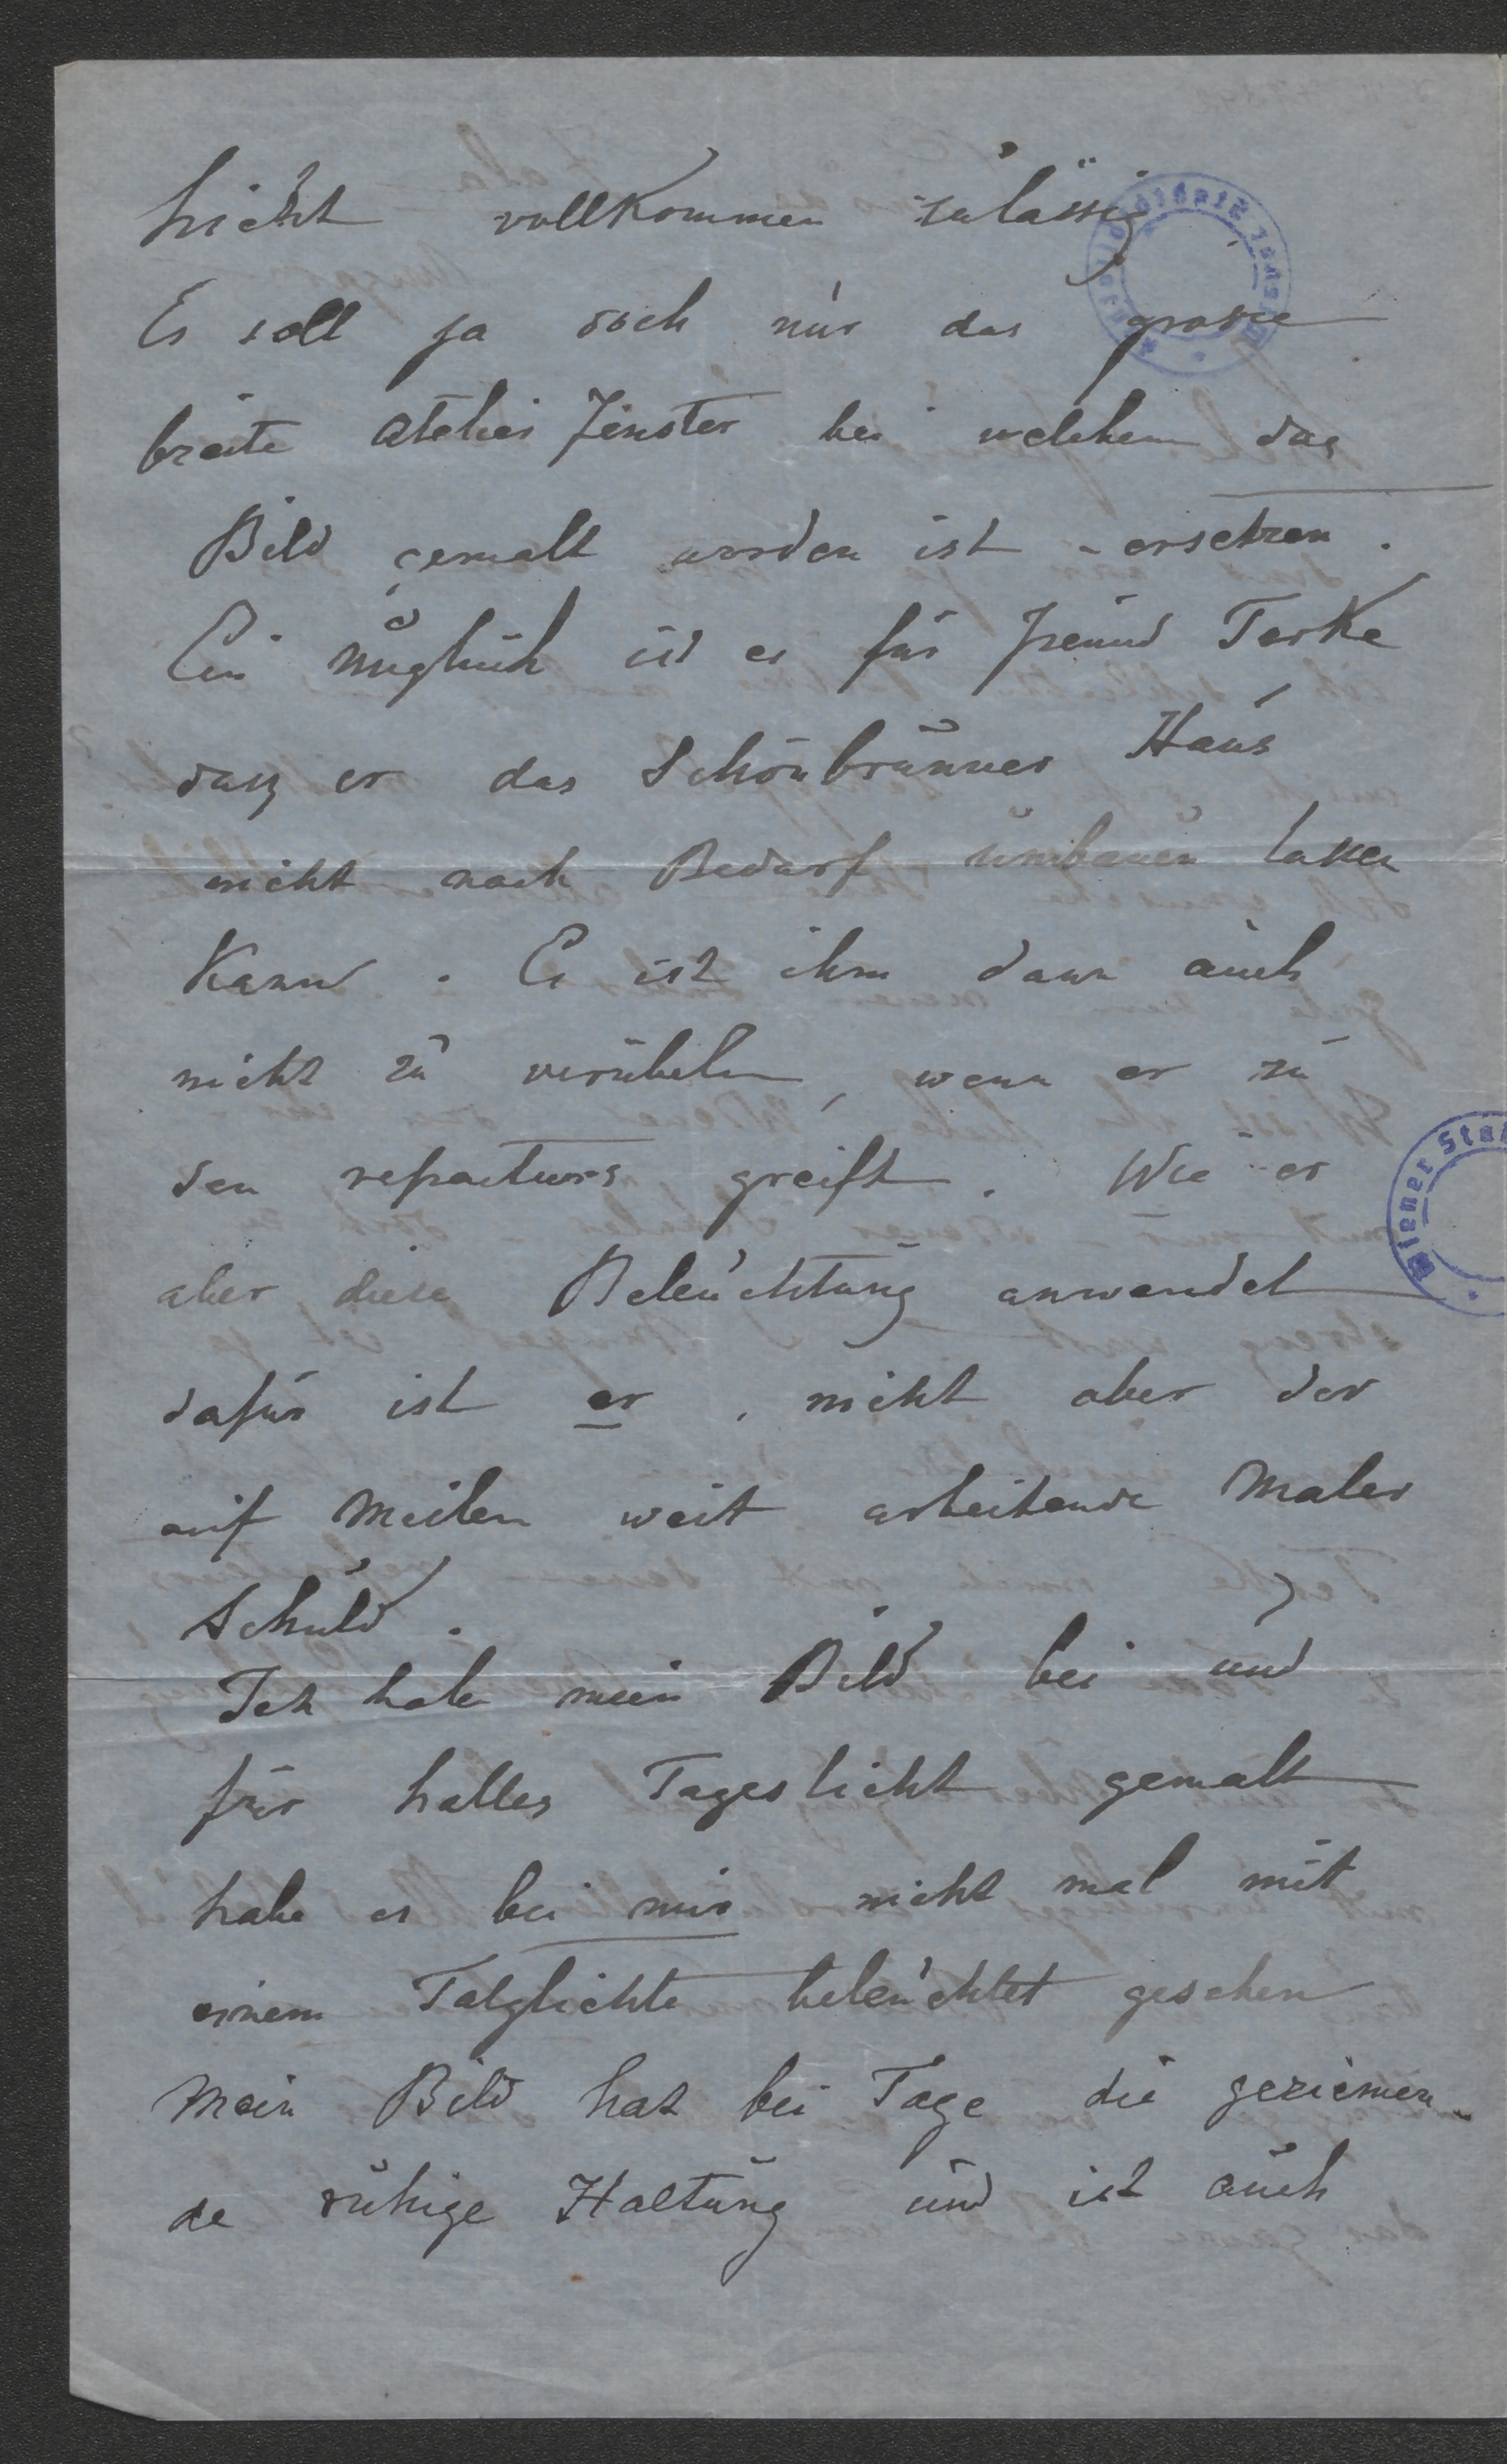 Licht vollkommen zulässig.
Es soll ja doch nur das grosse
breite Atelier Fenster bei welchem das
Bild gemalt worden ist - ersetzen.
Ein Unglück ist es für Freund Terke
dass er das Schönbrunner Haus
nicht nach Bedarf umbauen lassen
Kann. Es ist ihm dann auch
nicht zu verübeln, wenn er zu
den refracteurs greift. Wie er
aber diese Beleuchtung anwendet
dafür ist er, nicht aber der
auf Meilen weit arbeitende Maler
Schuld.
Ich habe mein Bild bei und
für helles Tageslicht gemalt
habe es bei mir nicht mal mit
einem Talglichte beleuchtet gesehen
Mein Bild hat bei Tage die geziemen-
de ruhige Haltung und ist auch
Wiener Sta